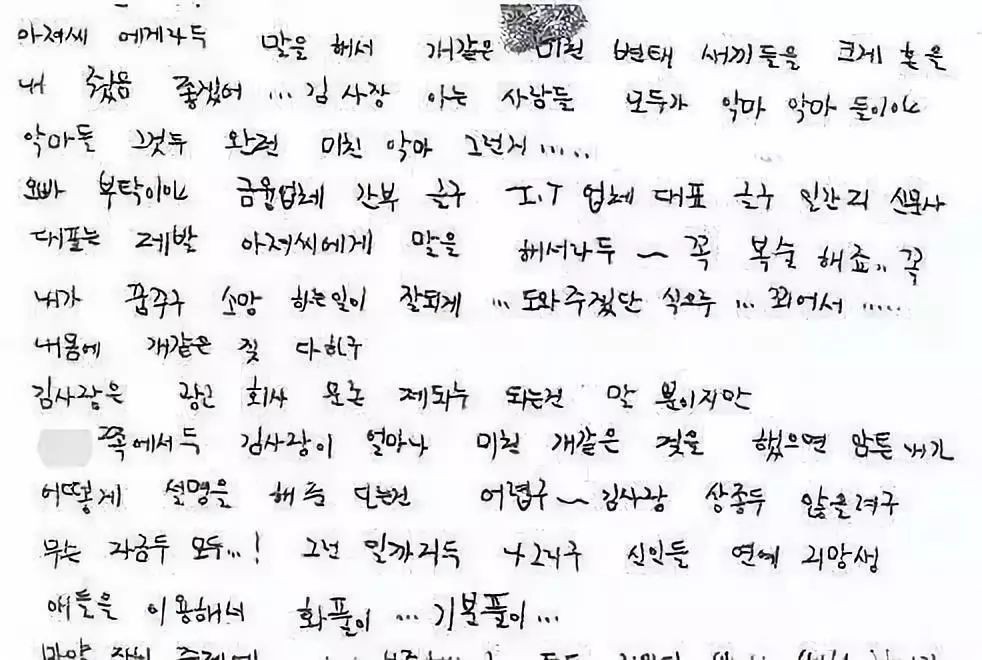 아저씨 에게라두 말을 해서 개같은 미친 변태 새끼들을 크게 혼을
내 줬음 좋겠어 ... 김 사장 아는 사람들 모두가 악마 악마 들이야
악마들 그것두 완전 미친 악마 그런지 .....
오빠 부탁이야 금융업체 간부 글구 I.T 업체 대표 글구 일간지 신문사
대표는 제발 아저씨에게 말을 해서라두 ~ 꼭 복수 해죠.. 꼭
내가 꿈꾸구 소망 하는일이 잘되게 ... 도와주겠단 식으루 ... 꾀어서 .....
내몸에 개같은 짓 다하구
김사장은 광고 회사 모든 제 되는건 말 뿐이지만
쪽에서두 김사장이 얼마나 미친 개같은 짓을 했으면 암튼 내가
어떻게 설명을 해 어렵구 ~ 김사장 상종두 않을려구
무슨 자금두 모두...! 그런 일까지두 나그리구 신인들 연예 지망생
애들을 이용해서 화풀이 ... 기분풀이 ...